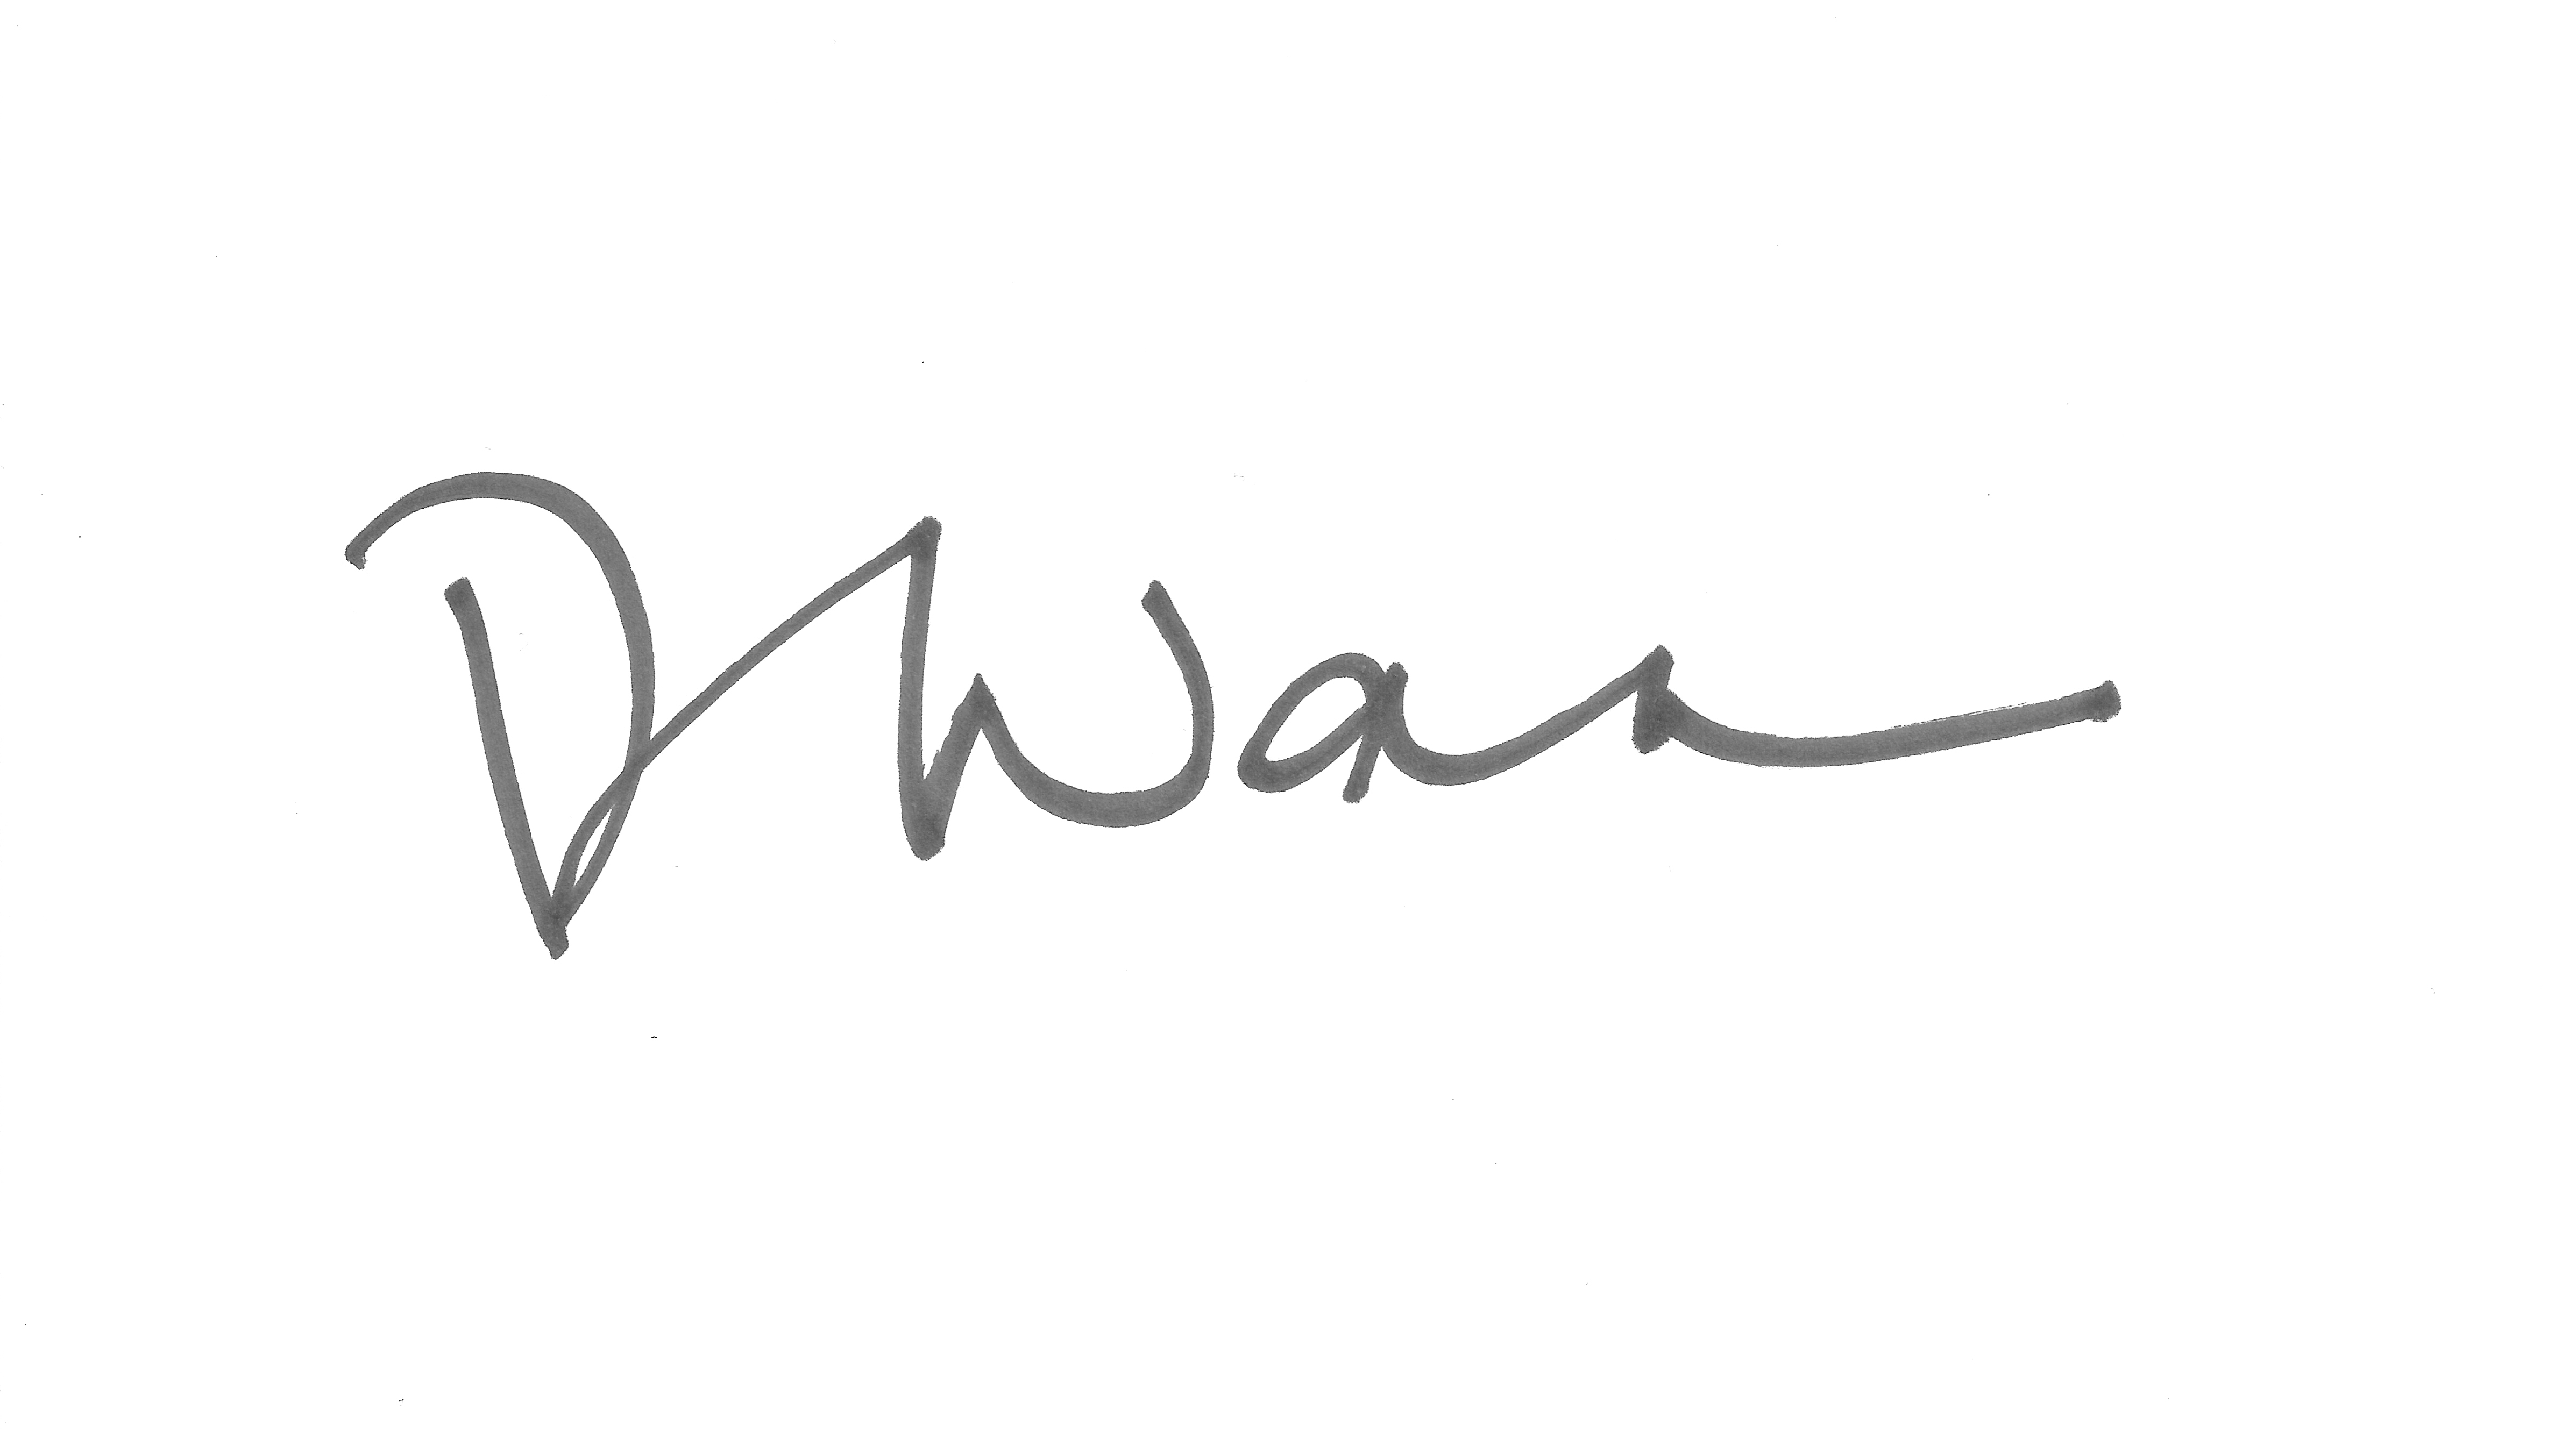 D Wan